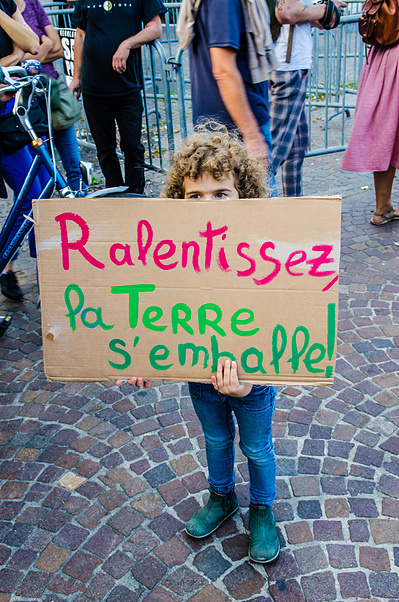 Ralentissez,
la Terre
s'emballe!